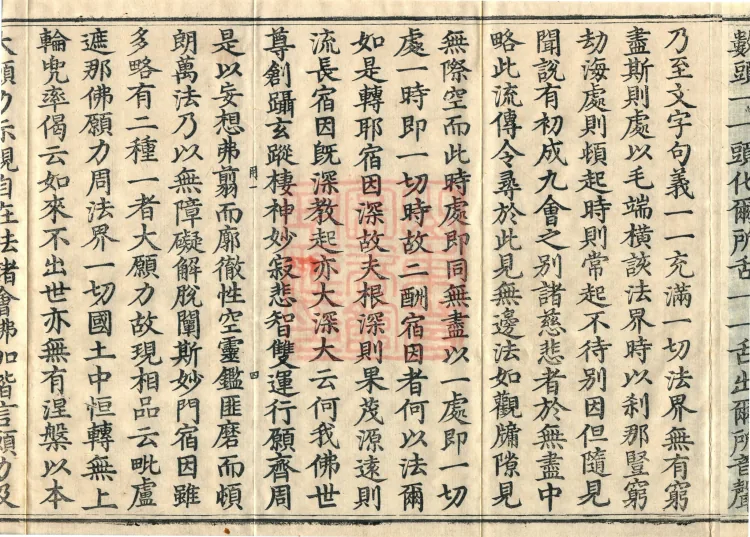 數頭一一頭化爾所舌一一舌出爾所音聲
乃至文字句義一一充滿一切法界無有窮
盡斯則處以毛端橫該法界時以刹那豎窮
劫海處則頓起時則常起不待別因但隨見
聞說有初成九會之別諸慈悲者於無盡中
略此流傳令尋於此見無邊法如觀牖隙見
無際空而此時處即同無盡以一處即一切
處一時即一切時故二酬宿因者何以法爾
如是轉耶宿因深故夫根深則果茂源遠則
流長宿因旣深教起亦大深大云何我佛世
尊創躡玄蹤棲神妙寂悲智雙運行願齊周
是以妄想弗翦而廓徹性空靈鑑匪磨而頓
朗萬法乃以無障礙解脫闡斯妙門宿因雖
多略有二種一者大願力故現相品云毗盧
遮那佛願力周法界一切國土中恒轉無上
輪兜率偈云如來不出世亦無有涅槃以本
大願力示現自在法諸會佛加皆言願力及